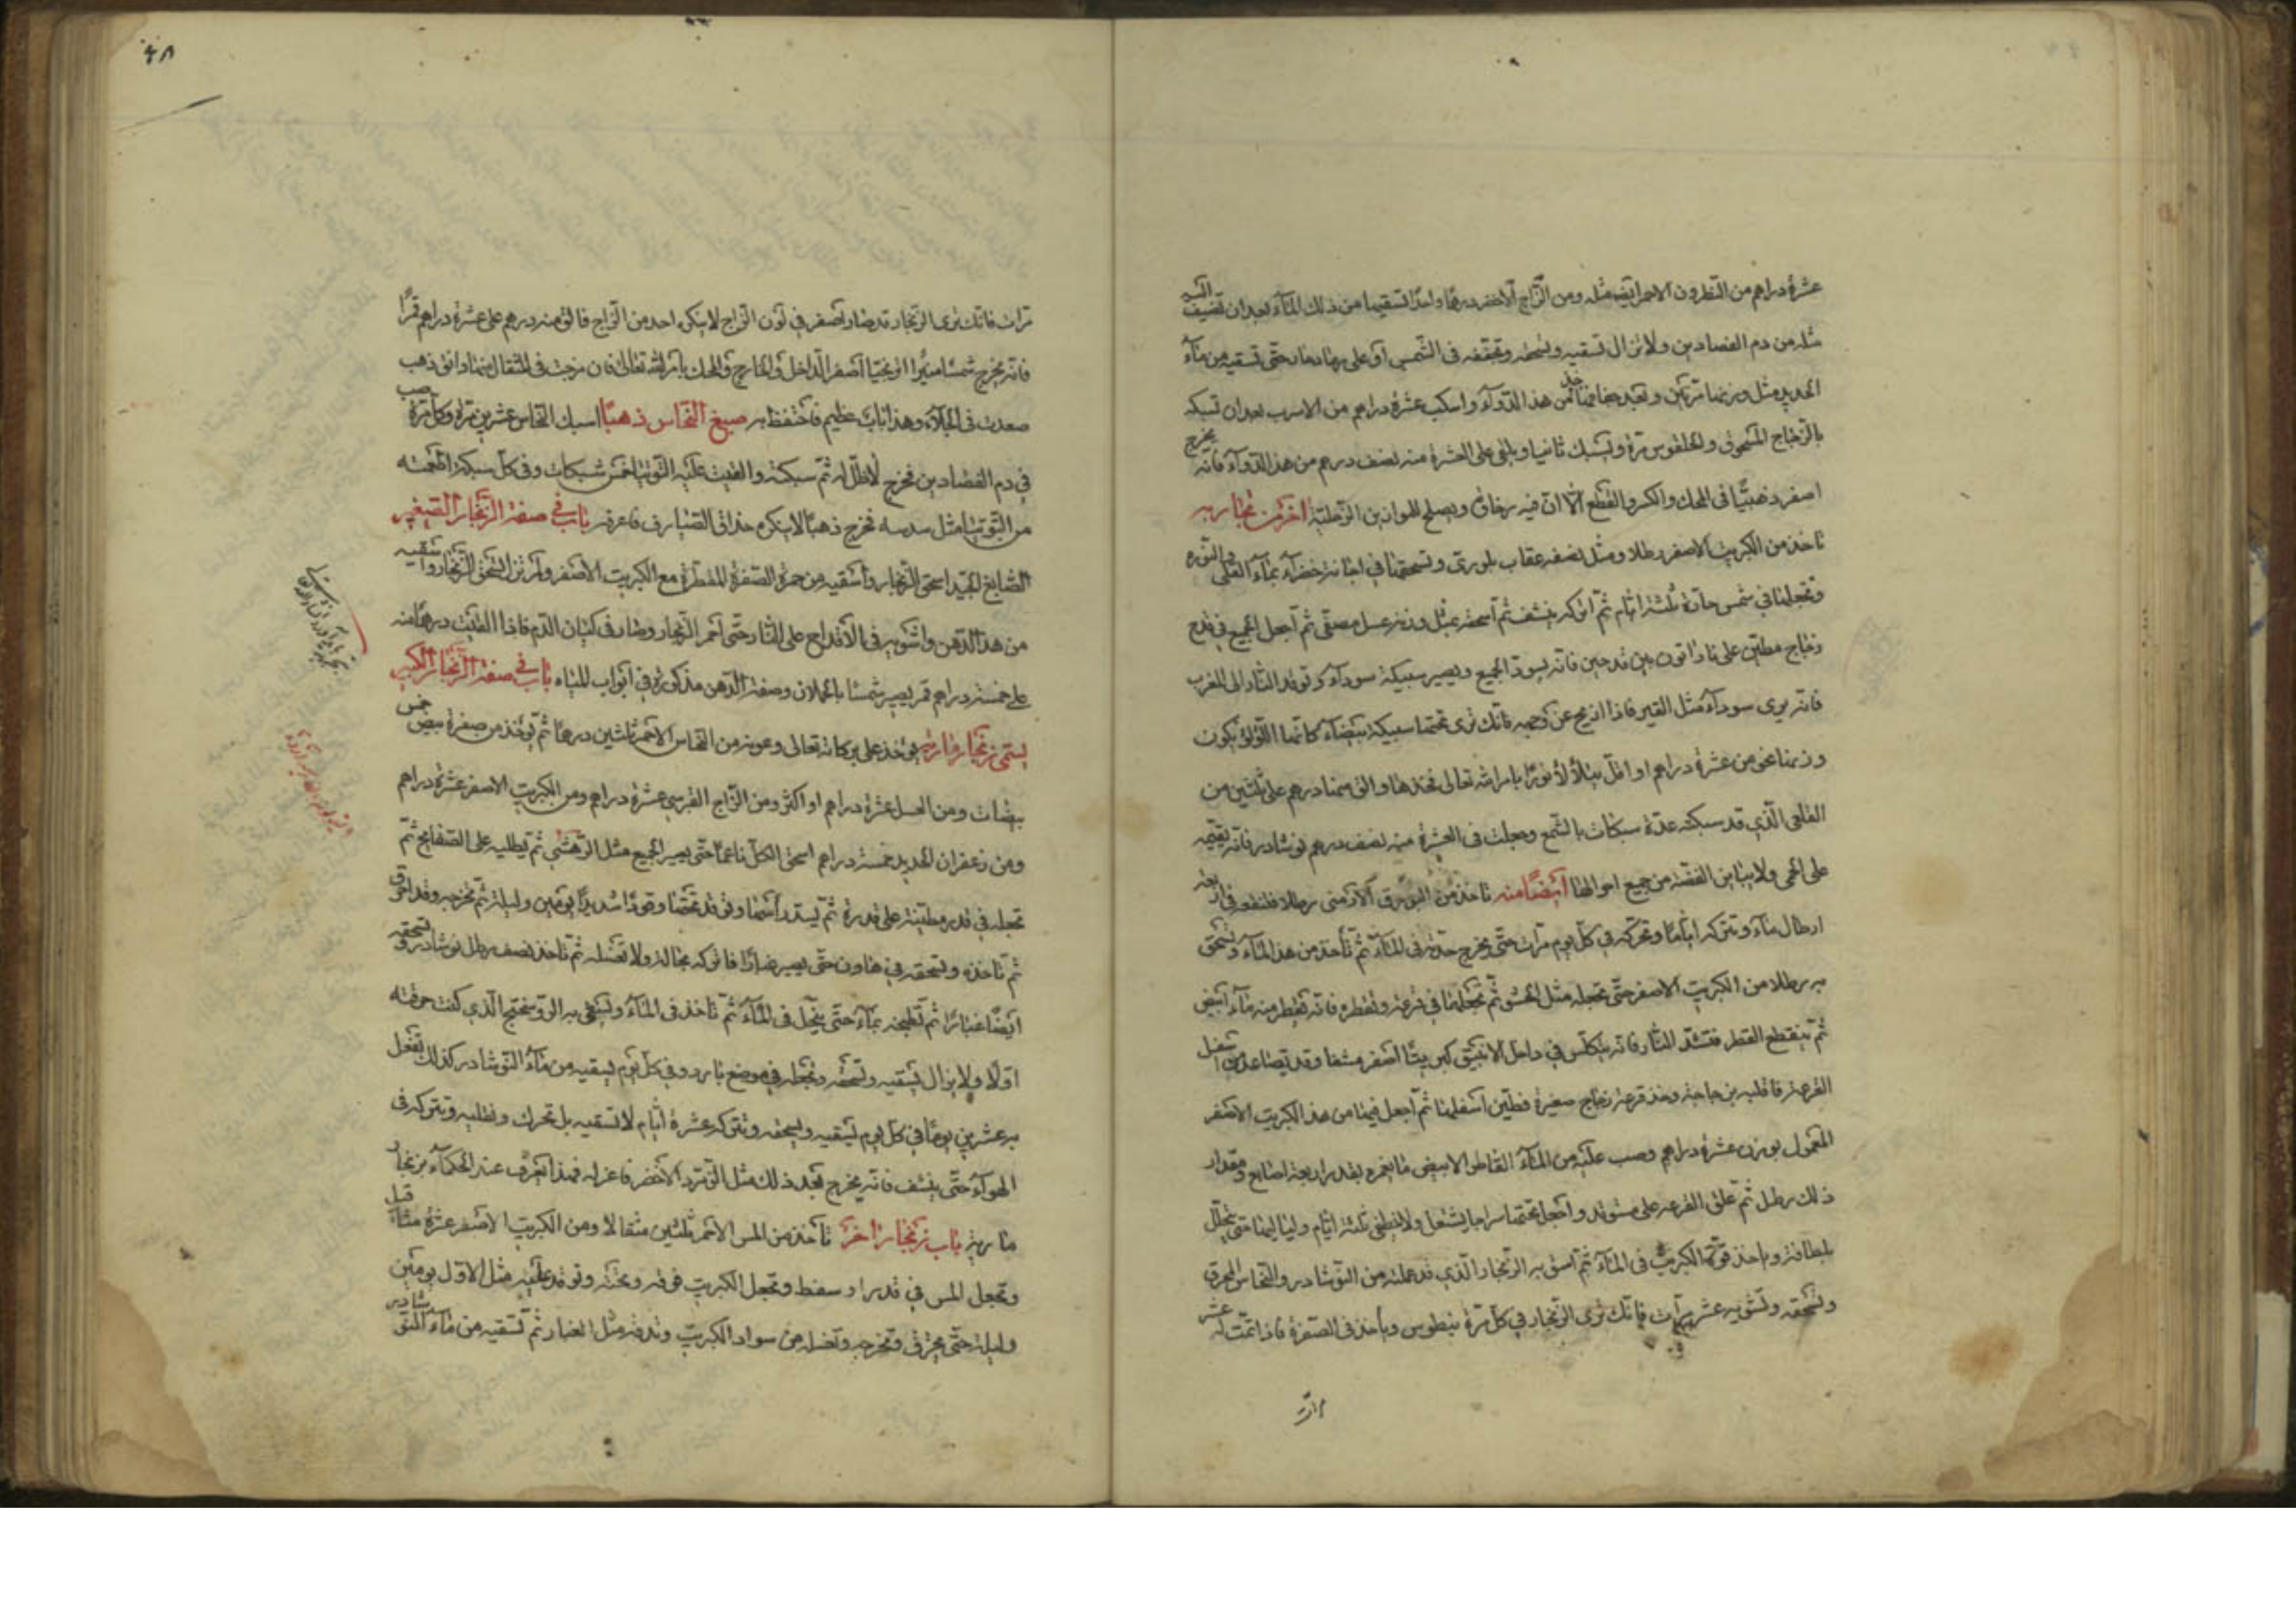 عشرة دراهم من النطرون الاحمر ايضا مثله ومن الزاج الاخضر درهما واحدا تسقيها من ذلك الماء بعد ان تضيف اليه
مثله من دم الفصادين ولا تزال تسقيه وتسحقه وتجففه فى الشمس او على رماد حار حتى تسقيه من ماء
الحديد مثل وزنها مرتين وبعد جفافها خذ من هذا الدواء واسكب عشرة دراهم من الاسرب بعد ان تسبكه
بالزجاج المسحوق والخلقوس مرة وتسبك ثانيا ويلقى على العشرة منه نصف درهم من هذا الدواء فانه يخرج
اصفر ذهبيا فى المحك والكسر والقطع الا ان فيه رخاوة ويصلح للموازين الرملية اخر من نجاربه
تاخذ من الكبريت الاصفر رطلا ومثل نصفه عقاب بلورى وتسحقها في اجانة خضراء بماء القلى والنوره
وتجعلها في شمس حارة ثلثة ايام ثم اتركه ينشف ثم اسحقه بمثل وزنه عسل مصفى ثم اجعل الجميع في قدح
زجاج مطين على نار اتون بين قدحين فانه يسود الجميع ويصير سبيكة سوداء وتوقد النار الى المغرب
فانه يرى سوداء مثل القير فاذا انزيح عن وجهه فانك ترى تحتها سبيكة بيضاء كانها اللؤلؤ يكون
وزنها نحو من عشرة دراهم او اقل يتلألأ نورا بامر الله تعالى فخذها والق منها درهم على ثلثين من
القلعى الذي قد سبكته عدة سبكات بالشمع وجعلت فى العشرة منه نصف درهم نوشادر فانه يقيمه
على الحمى ولا يباين الفضة من جميع احوالها ايضا منه تاخذ من البورق الارمنى رطلا فتنقعه في اربعة
ارطال ماء وتتركه اياما وتحركه في كل يوم مرات حتى يخرج حدته فى الماء ثم تأخذ من هذا الماء وتسحق
به رطلا من الكبريت الاصفر حتى تجعله مثل الحسو ثم تجعلها في قرعة وتقطره فانه تقطر منه ماء ابيض
ثم ينقطع القطر فتشد النار فانه يتكلس في داخل الانبيق كبريتا اصفر مشفا وقد تصاعد من اسفل
القرعة فاقلبه بن جاجة وخذ قرعة زجاج صغيرة فطين اسفلها ثم اجعل فيها من هذا الكبريت الاصفر
المعمول بوزن عشرة دراهم وصب عليه من الماء القاطر الابيض ما يغمره بقدر اربعة اصابع ومقدار
ذلك رطل ثم علق القرعه على مستوقد واجعل تحتها سراجا يشتعل ولا ينطفى ثلثة ايام ولياليها حتى ينحل
بلطافة وياخذ قوتها الكبريت فى الماء ثم اسق به الزنجار الذي قد عملته من النوشادر والنحاس المحرق
وتسحقه وتشويه عشر مرات فانك ترى الزنجار في كل مرة ينطوس وياخذ فى الصفرة فاذا تمت له عشر
مرات
٤٨
مرات فانك ترى الزنجار قد صار اصفر في لون الزاج لا ينكره احد من الزاج فالق منه درهم على عشرة دراهم قمرا
فانه يخرج شمسا منيرا اترنجيا اصفر الداخل والخارج والمحك بامر الله تعالى فان مزجت فى المثقال منها دانق ذهب
صعدت فى الجلاء وهذا باب عظيم فاحتفظ به صبغ النحاس ذهبا اسبك النحاس عشرين مرة وكل مرة صب
في دم الفصادين فيخرج لا ظل له ثم سبكته والقيت عليه التوتيا خمس سبكات وفى كل سبكة اطعمته
من التوتيا مثل سدسه فيخرج ذهبا لا ينكره حذاق الصيارف فاعرفه باب في صفة الزنجار الصغير
الصابغ الجيد اسحق الزنجار واسقيه من حمرة الصفرة المقطرة مع الكبريت الاصفر ولم تزل تسحق الزنجار وتسقيه
من هذا الدهن واشويه فى الاقداح على النار حتى احمر الزنجار وصار فى كيان الدم فاذا القيت درهما منه
على خمسة دراهم قمر يصير شمسا بالحملان وصفة الدهن مذكورة في ابواب المياه باب في صفة الزنجار الكبير
يسمى زنجار مارية يؤخذ على بركة الله تعالى وعونه من النحاس الاحمر ثلثين درهما ثم تؤخذ من صفرة بيض خمس
بيضات ومن العسل عشرة دراهم او اكثر ومن الزاج القبرسى عشرة دراهم ومن الكبريت الاصفر عشرة دراهم
ومن زعفران الحديد خمسة دراهم اسحق الكل ناعما حتى يصير الجميع مثل الرهشى ثم تطليه على الصفايح ثم
تجعله في قدر مطينة على قدرة ثم يستد رأسها وتوقد تحتها وقودا شديدا يومين وليلة ثم تخرجه وقد احترق
ثم تاخذه وتسحقه في هاون حتى يصير غبارا فاتركه بحاله ولا تغسله ثم تاخذ نصف رطل نوشادر وتسحقه
ايضا غبارا ثم تطبخه بماء حتى ينحل فى الماء ثم تاخذ فى الماء وتسقى به الروسختج الذي كنت حرقته
اولا ولا يزال تسقيه وتسحقه وتجعله في موضع بارد وفي كل يوم تسقيه من ماء النوشادر كذلك تفعل
به عشرين يوما في كل يوم تسقيه وتسحقه وتتركه عشرة ايام لا تسقيه بل تحركه وتقلبه وتتركه فى
الهواء حتى ينشف فانه يخرج بعد ذلك مثل الزمرد الاخضر فاعزله فهذا يعرف عند الحكماء بزنجار
مارية باب زنجار اخر تأخذ من المس الاحمر ثلثين مثقالا ومن الكبريت الاصفر عشرة مثاقيل
وتجعل المس في قدر او سفط وتجعل الكبريت فوقه وتحته وتوقد عليه مثل الاول يومين
وليلة حتى يحترق وتخرجه وتغسله من سواد الكبريت وتدقه مثل الغبار ثم تسقيه من ماء النوشادر